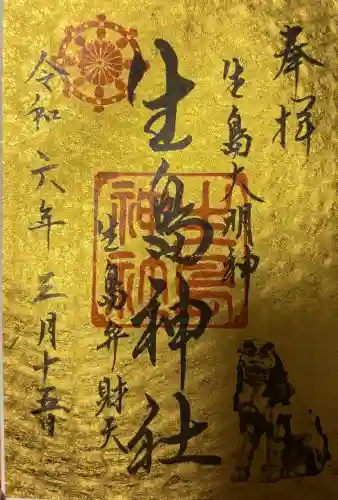 奉拝
生島大明神
生島神社
生島弁財天
令和六年三月十五日
生島神社